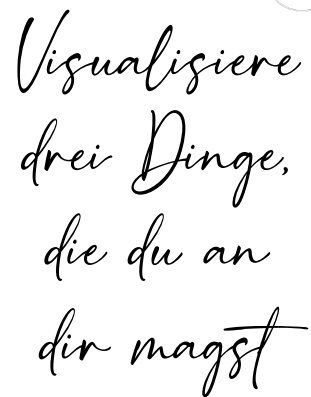 Visualisiere
drei Dinge,
die du an
dir magst